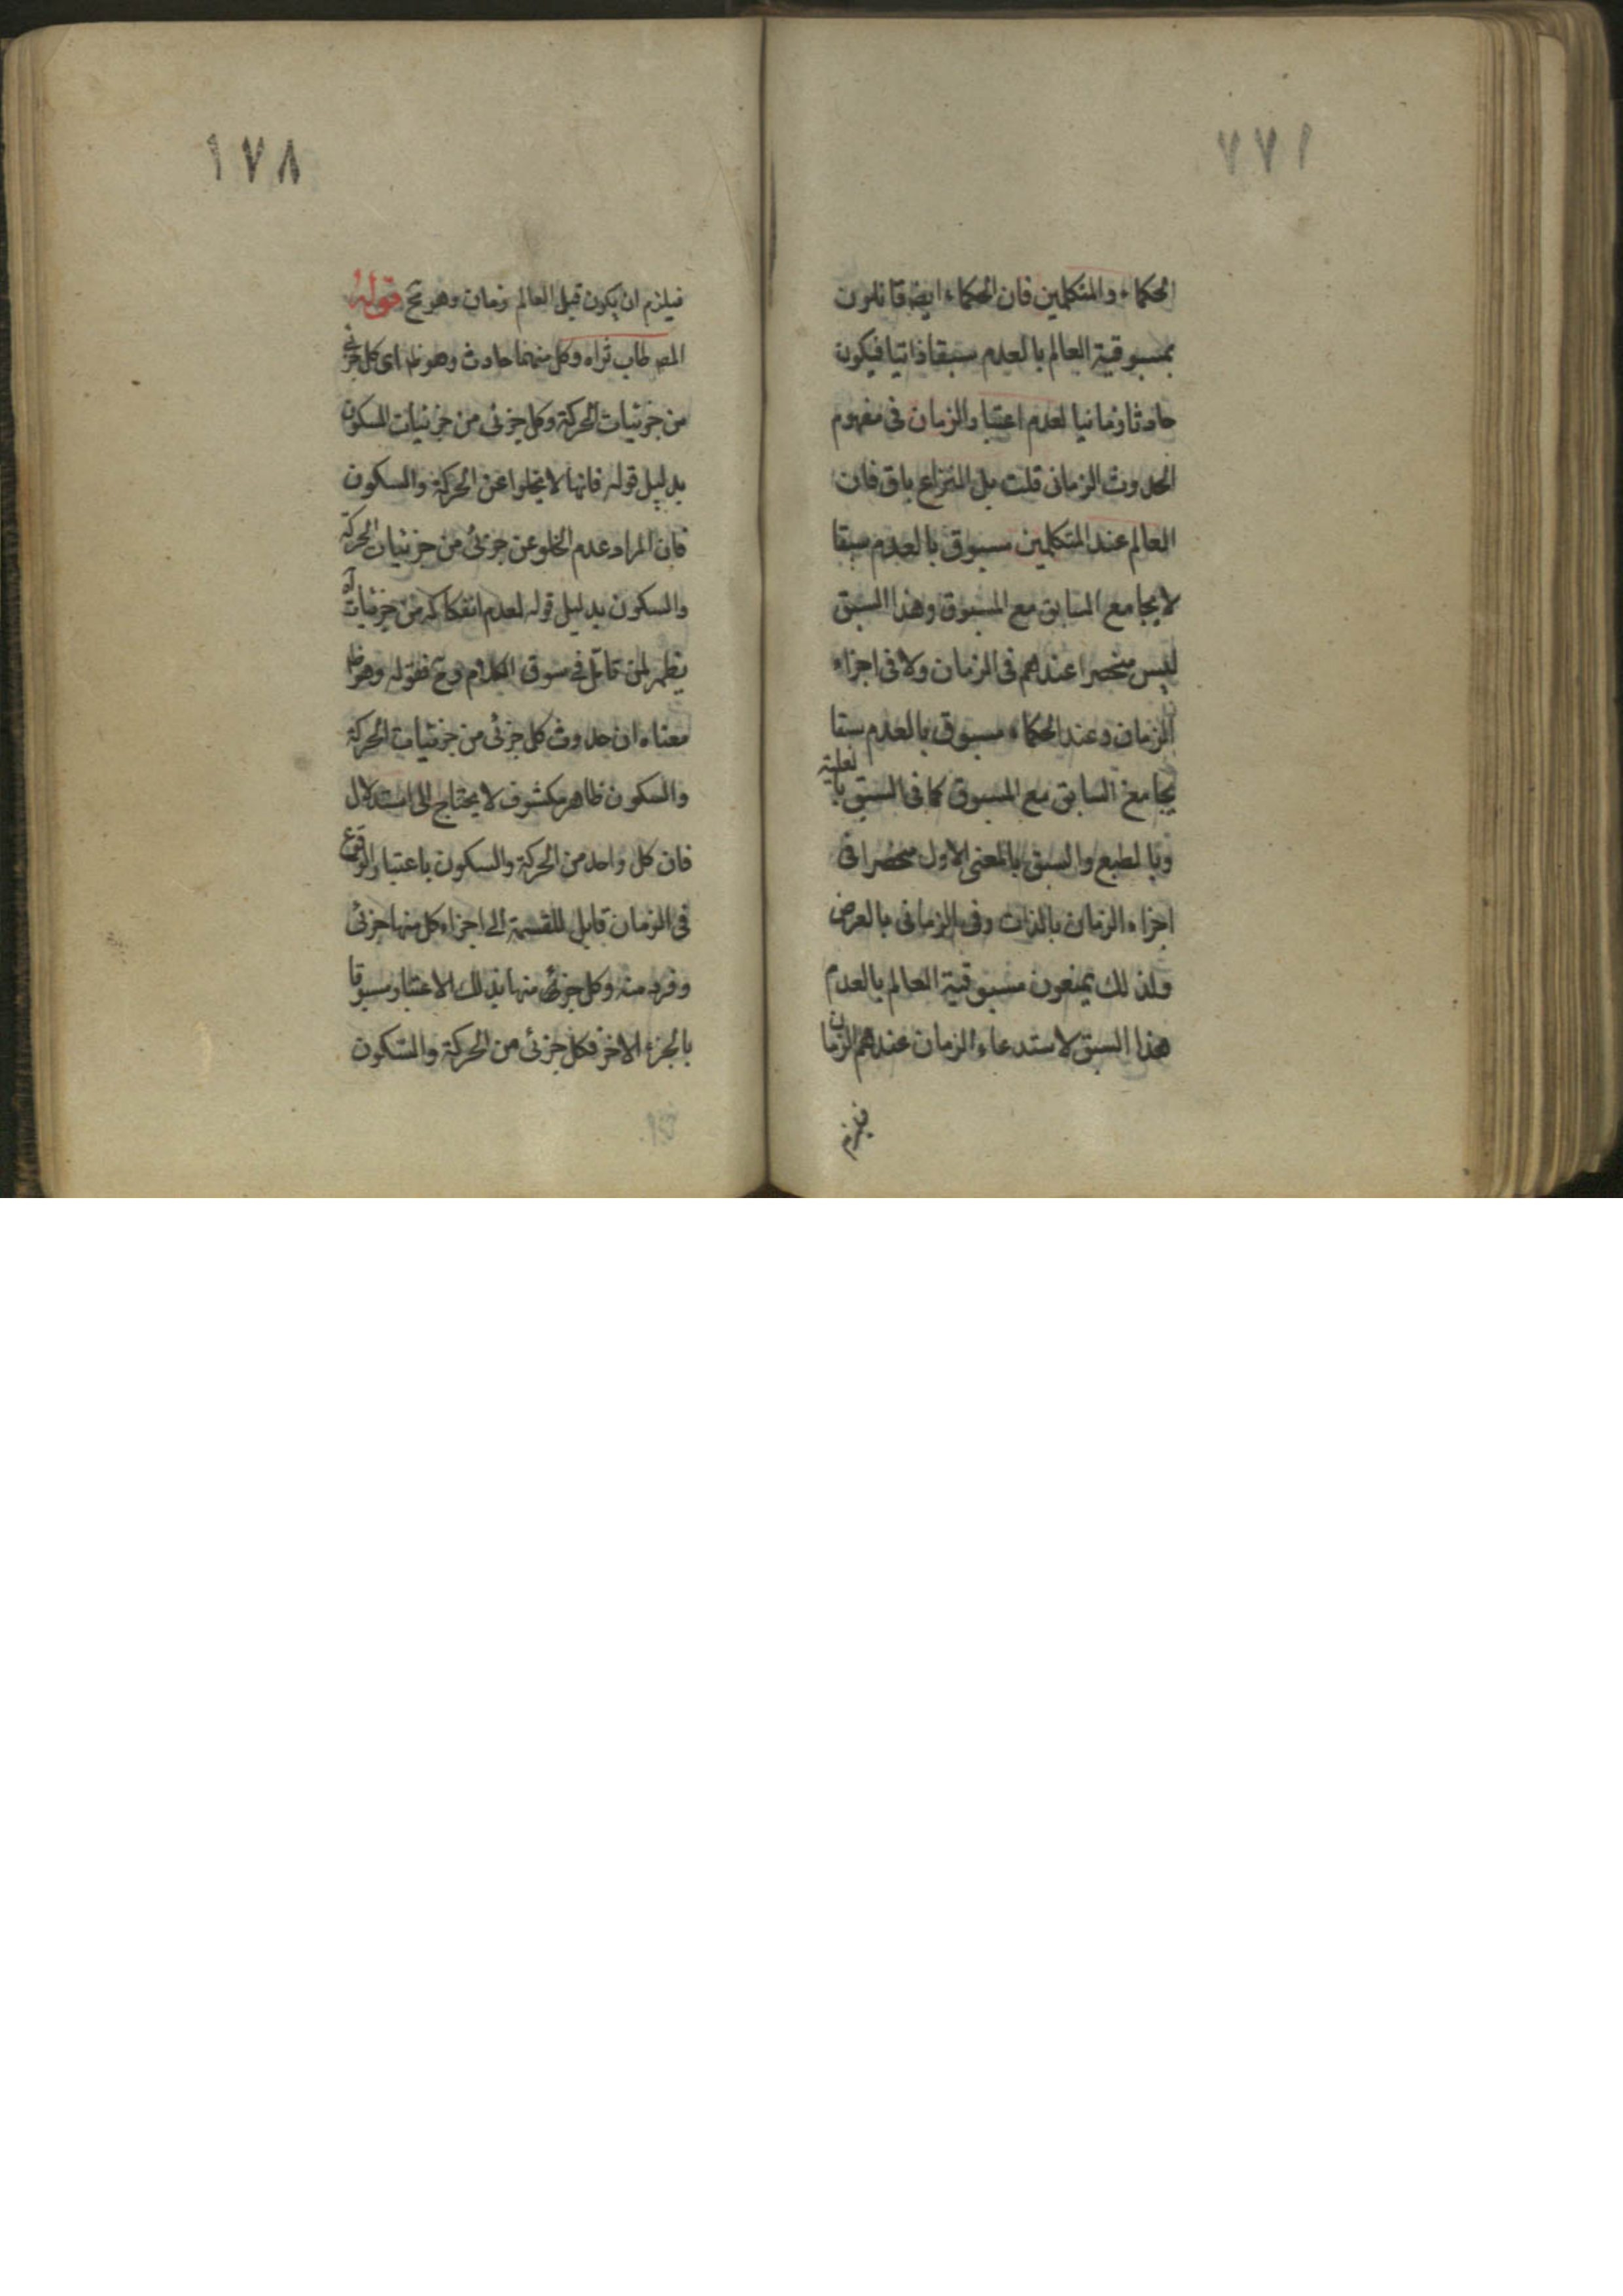 ١٧٧
الحكماء والمتكلمين فان الحكماء ايضا قائلون
بمسبوقية العالم بالعدم سبقا ذاتيا فيكون
حادثا زمانيا لعدم اعتبار الزمان فى مفهوم
الحدوث الزمانى قلت بل النزاع باق فان
العالم عند المتكلمين مسبوق بالعدم سبقا
لا يجامع السابق مع المسبوق وهذا السبق
ليس منحصرا عندهم فى الزمان ولا فى اجزاء
الزمان وعند الحكماء مسبوق بالعدم سبقا
يجامع السابق مع المسبوق كما فى السبق بالعلية
وبالطبع والسبق بالمعنى الاول منحصر فى
اجزاء الزمان بالذات وفى الزمانى بالعرض
ولذلك يمنعون مسبوقية العالم بالعدم
هذا السبق لاستدعاء الزمان عندهم الزمان
فيلزم
١٧٨
فيلزم ان يكون قبل العالم زمان وهو مح قوله
المص طاب ثراه وكل منهما حادث وهو ظ اى كل جزئى
من جزئيات الحركة وكل جزئى من جزئيات السكون
بدليل قوله فانها لا تخلوا عن الحركة والسكون
فان المراد عدم الخلو عن جزئى من جزئيات الحركة
والسكون بدليل قوله لعدم انفكاكه من جزئيات اه
يظهر لمن تأمل فى سوق الكلام وح فقوله وهو ظ
معناه ان حدوث كل جزئى من جزئيات الحركة
والسكون ظاهر مكشوف لا يحتاج الى استدلال
فان كل واحد من الحركة والسكون باعتبار الوقوع
فى الزمان قابل للقسمة الى اجزاء كل منها جزئى
وفرد منه وكل جزئى منها بذلك الاعتبار مسبوقا
بالجزء الاخر فكل جزئى من الحركة والسكون